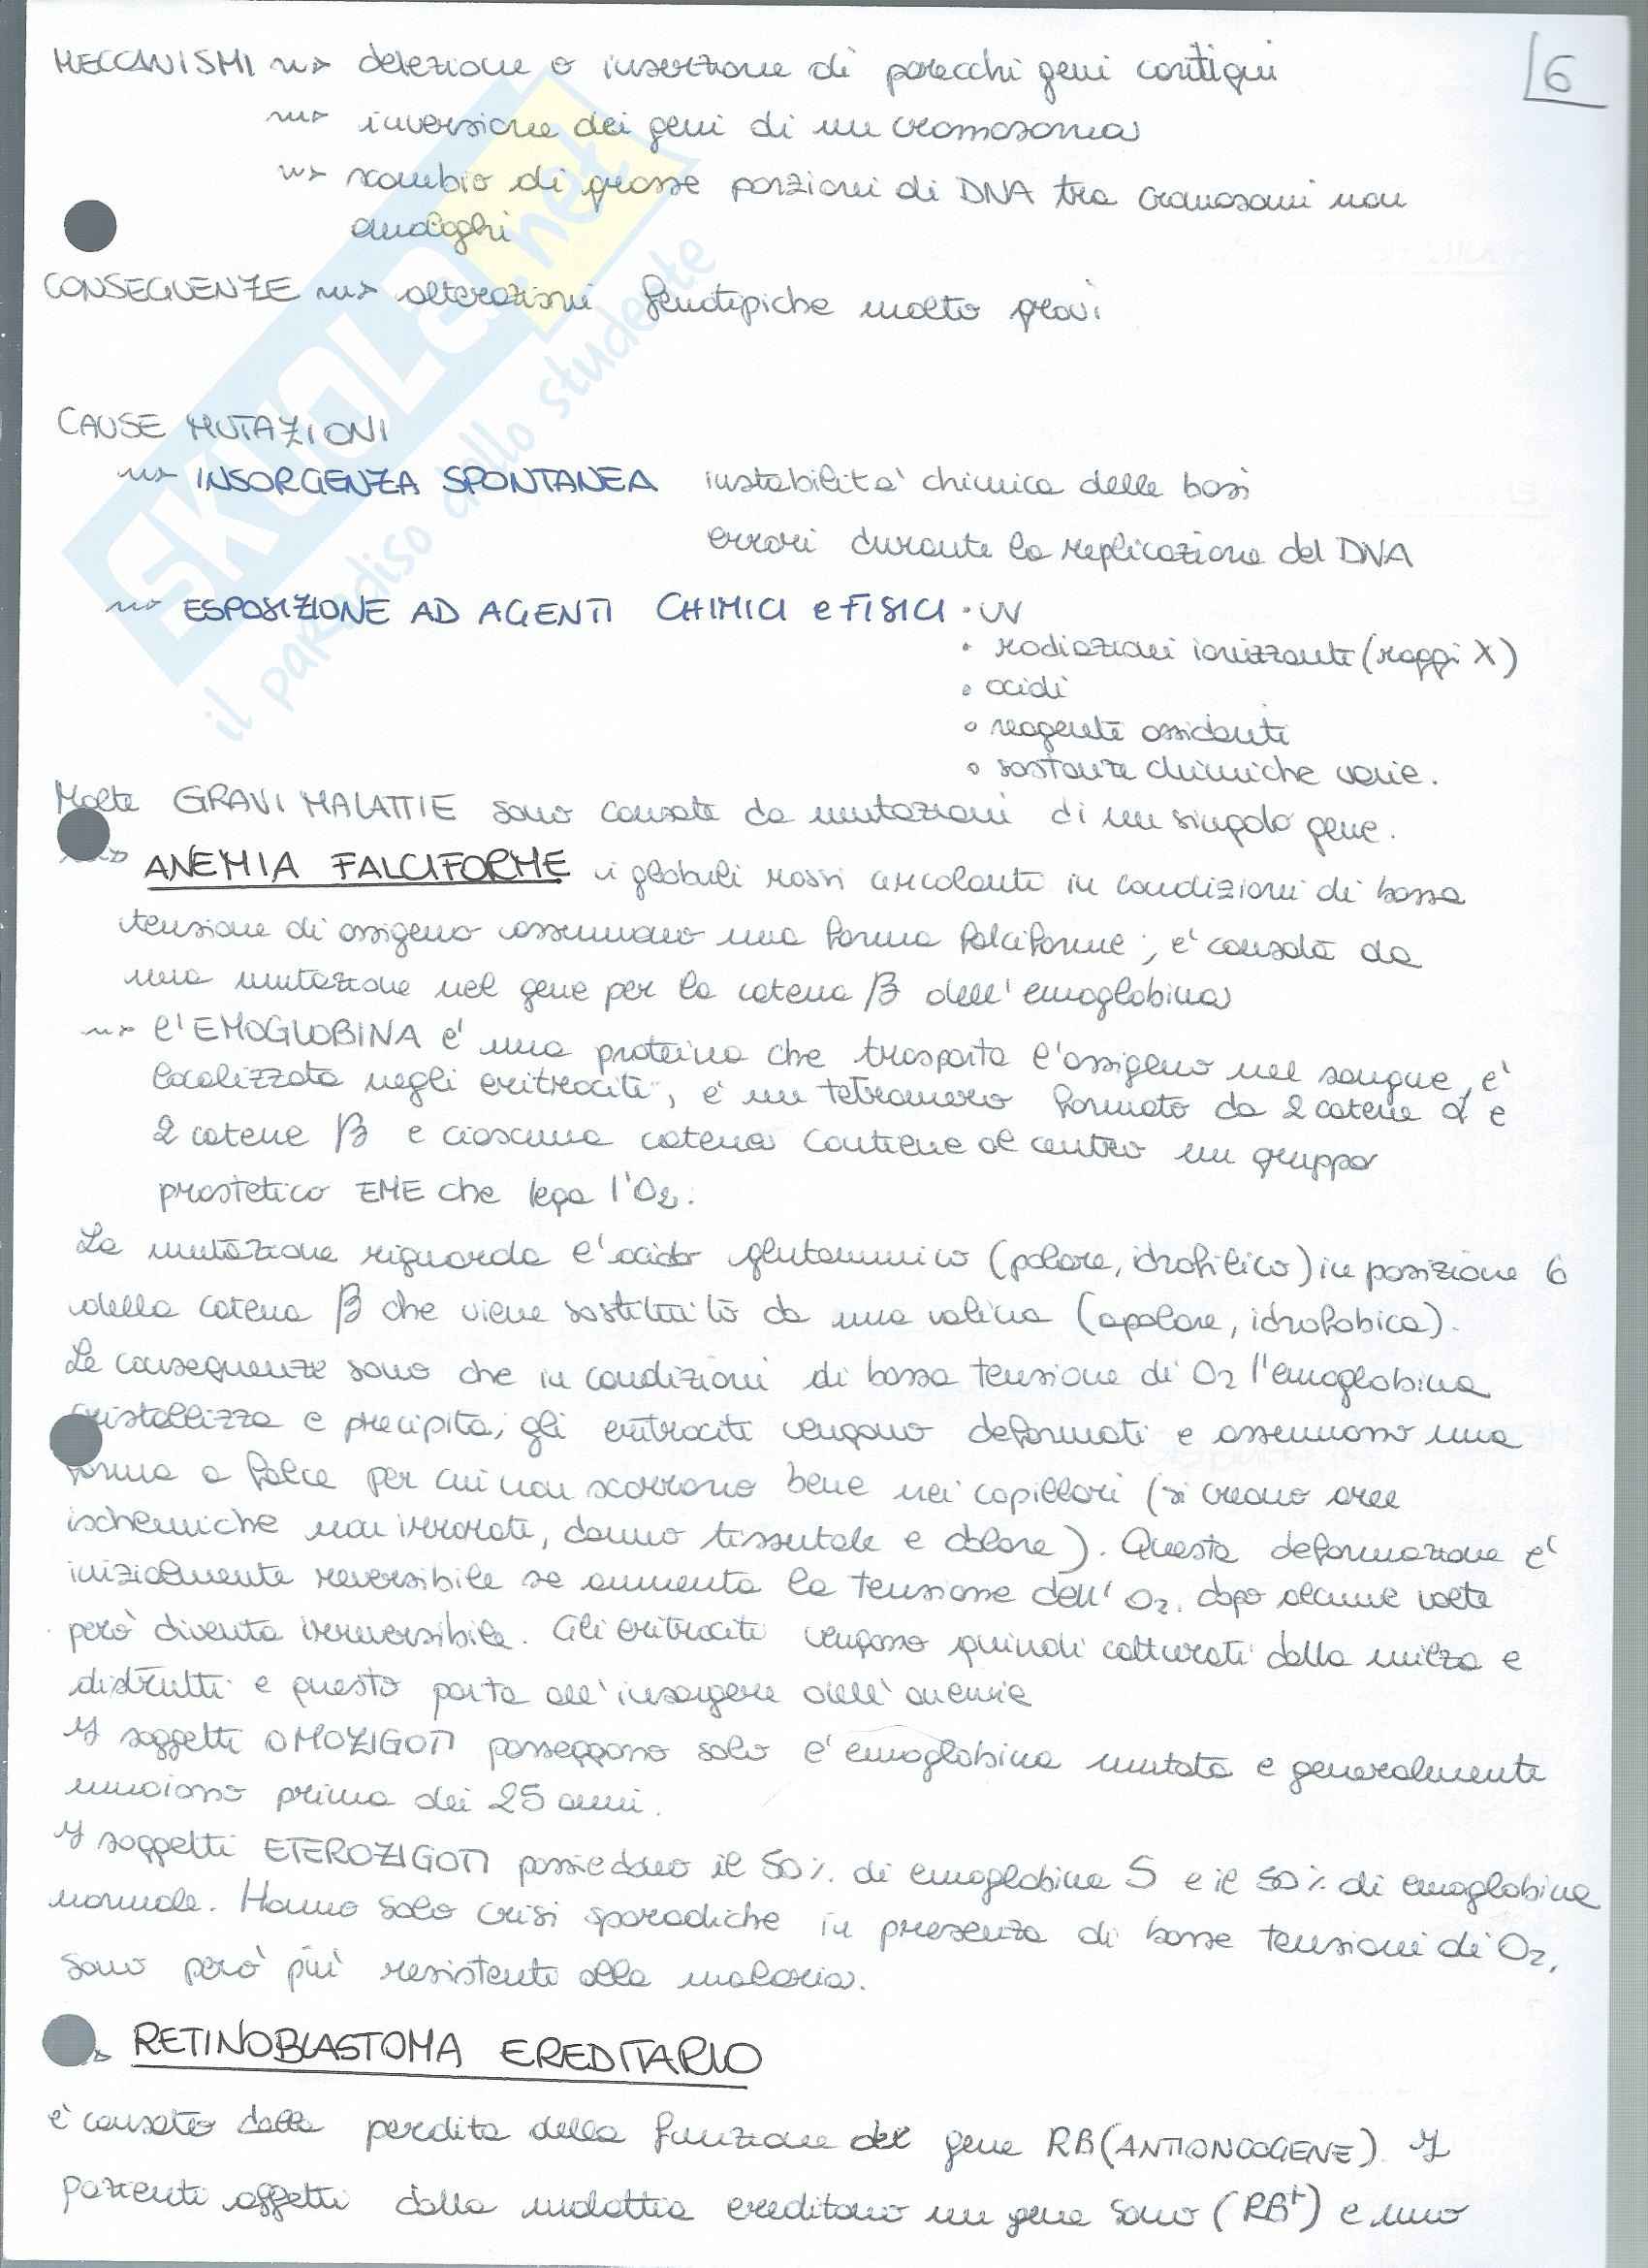 6
MECCANISMI ~> delezione o inserzione di parecchi geni contigui
~> inversione dei geni di un cromosoma
~> scambio di grosse porzioni di DNA tra cromosomi non
analoghi
CONSEGUENZE ~> alterazioni fenotipiche molto gravi
CAUSE MUTAZIONI
~> INSORGENZA SPONTANEA instabilità chimica delle basi
errori durante la replicazione del DNA
~> ESPOSIZIONE AD AGENTI CHIMICI e FISICI • UV
• radiazioni ionizzanti (raggi X)
• acidi
• reagenti ossidanti
• sostanze chimiche varie.
Molte GRAVI MALATTIE sono causate da mutazioni di un singolo gene.
~> ANEMIA FALCIFORME i globuli rossi circolanti in condizioni di bassa
tensione di ossigeno assumono una forma falciforme; è causata da
una mutazione nel gene per la catena β dell'emoglobina
~> l'EMOGLOBINA è una proteina che trasporta l'ossigeno nel sangue, è
localizzata negli eritrociti, è un tetramero formato da 2 catene α e
2 catene β e ciascuna catena contiene al centro un gruppo
prostetico EME che lega l'O2.
La mutazione riguarda l'acido glutammico (polare, idrofilico) in posizione 6
della catena β che viene sostituito da una valina (apolare, idrofobica).
Le conseguenze sono che in condizioni di bassa tensione di O2 l'emoglobina
cristallizza e precipita, gli eritrociti vengono deformati e assumono una
forma a falce per cui non scorrono bene nei capillari (si creano aree
ischemiche non irrorate, danno tissutale e dolore). Questa deformazione è
inizialmente reversibile se aumenta la tensione dell'O2, dopo alcune volte
però diventa irreversibile. Gli eritrociti vengono quindi catturati dalla milza e
distrutti e questo porta all'insorgere dell'anemia
I soggetti OMOZIGOTI posseggono solo l'emoglobina mutata e generalmente
muoiono prima dei 25 anni.
I soggetti ETEROZIGOTI possiedono il 50% di emoglobina S e il 50% di emoglobina
normale. Hanno solo crisi sporadiche in presenza di basse tensioni di O2,
sono però più resistenti alla malaria.
RETINOBLASTOMA EREDITARIO
è causato dalla perdita della funzione del gene RB (ANTIONCOGENE). I
pazienti affetti dalla malattia ereditano un gene sano (RB+) e uno
SKUOLA.net
il paradiso dello studente